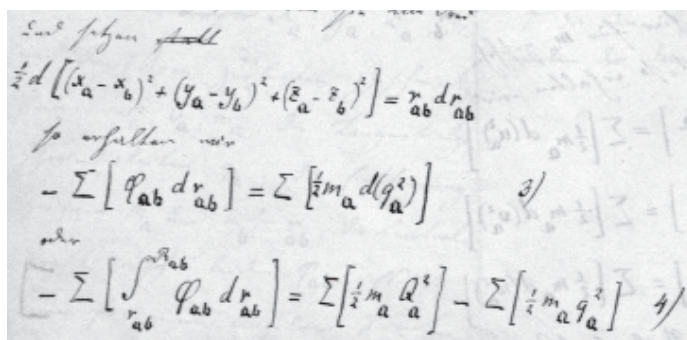 und setzen statt
½ d [(x_a - x_b)² + (y_a - y_b)² + (z_a - z_b)²] = r_ab dr_ab
so erhalten wir
- Σ [φ_ab dr_ab] = Σ [½ m_a d(q_a²)] 3)
oder
- Σ [∫_{r_ab}^{R_ab} φ_ab dr_ab] = Σ [½ m_a Q_a²] - Σ [½ m_a q_a²] 4)